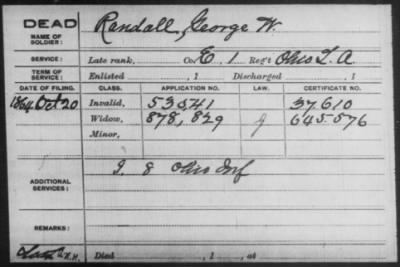 DEAD
NAME OF SOLDIER: Randall, George W.
SERVICE: Late rank, Co. E, 1 Reg't Ohio L. A
TERM OF SERVICE: Enlisted , 1 Discharged , 1
DATE OF FILING. CLASS. APPLICATION NO. LAW. CERTIFICATE NO.
1864 Oct 20 Invalid, 53041 37610
Widow, 878,829 645576
Minor,
ADDITIONAL SERVICES: I. 8 Ohio Inf
REMARKS:
Died , 1 , at